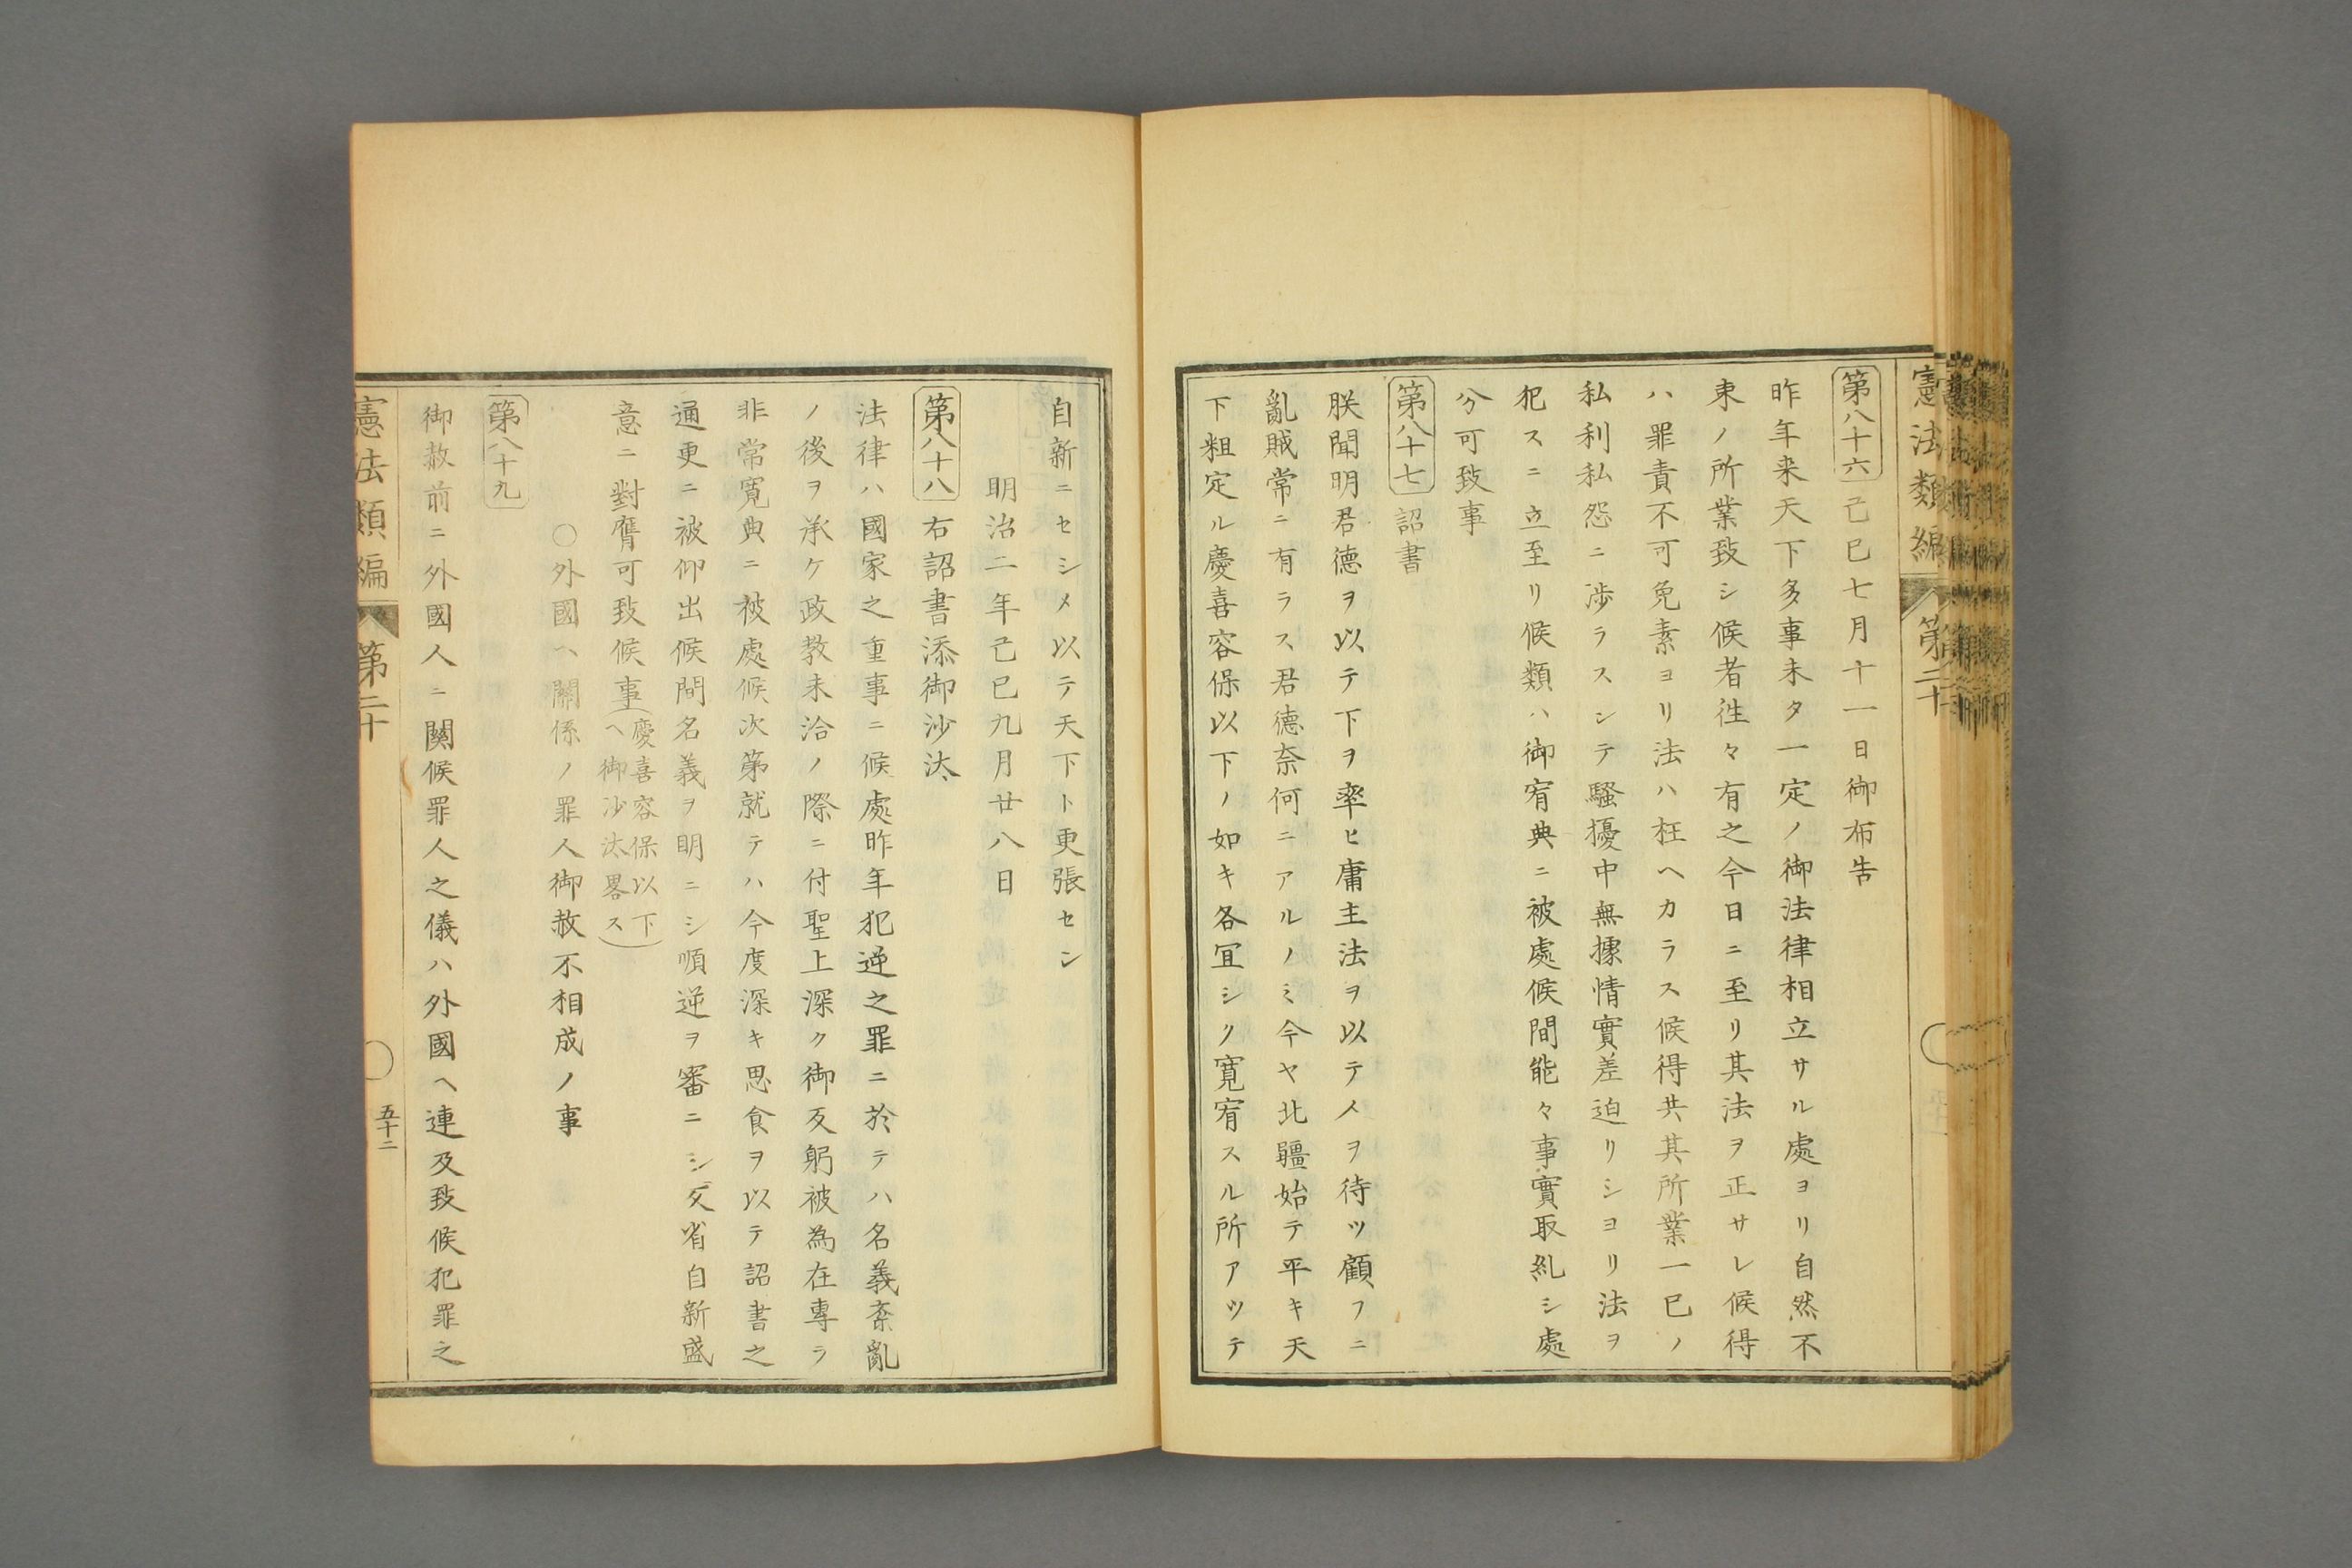 憲法類編
第二十
第八十六 己巳七月十一日御布告
昨年来天下多事未タ一定ノ御法律相立サル處ヨリ自然不
束ノ所業致シ候者徃々有之今日ニ至リ其法ヲ正サレ候得
ハ罪責不可免素ヨリ法ハ枉ヘカラス候得共其所業一已ノ
私利私怨ニ渉ラスシテ騒擾中無據情實差迫リシヨリ法ヲ
犯スニ立至リ候類ハ御宥典ニ被處候間能々事實取糺シ處
分可致事
第八十七 詔書
朕聞明君德ヲ以テ下ヲ率ヒ庸主法ヲ以テ人ヲ待ツ顧フニ
亂賊常ニ有ラス君德奈何ニアルノミ今ヤ北疆始テ平キ天
下粗定ル慶喜容保以下ノ如キ各冝シク寛宥スル所アツテ
自新ニセシメ以テ天下ト更張セシ
明治二年己巳九月廿八日
第八十八 右詔書添御沙汰
法律ハ國家之重事ニ候處昨年犯逆之罪ニ於テハ名義紊亂
ノ後ヲ承ケ政教未洽ノ際ニ付聖上深ク御反躬被為在專ラ
非常寛典ニ被處候次第就テハ今度深キ思食ヲ以テ詔書之
通更ニ被仰出候間名義ヲ明ニシ順逆ヲ審ニシ反省自新盛
意ニ對膺可致候事(慶喜容保以下
ヘ御沙汰畧ス)
〇外國ヘ關係ノ罪人御赦不相成ノ事
第八十九
御赦前ニ外國人ニ關候罪人之儀ハ外國ヘ連及致候犯罪之
憲法類編
第二十
五十二